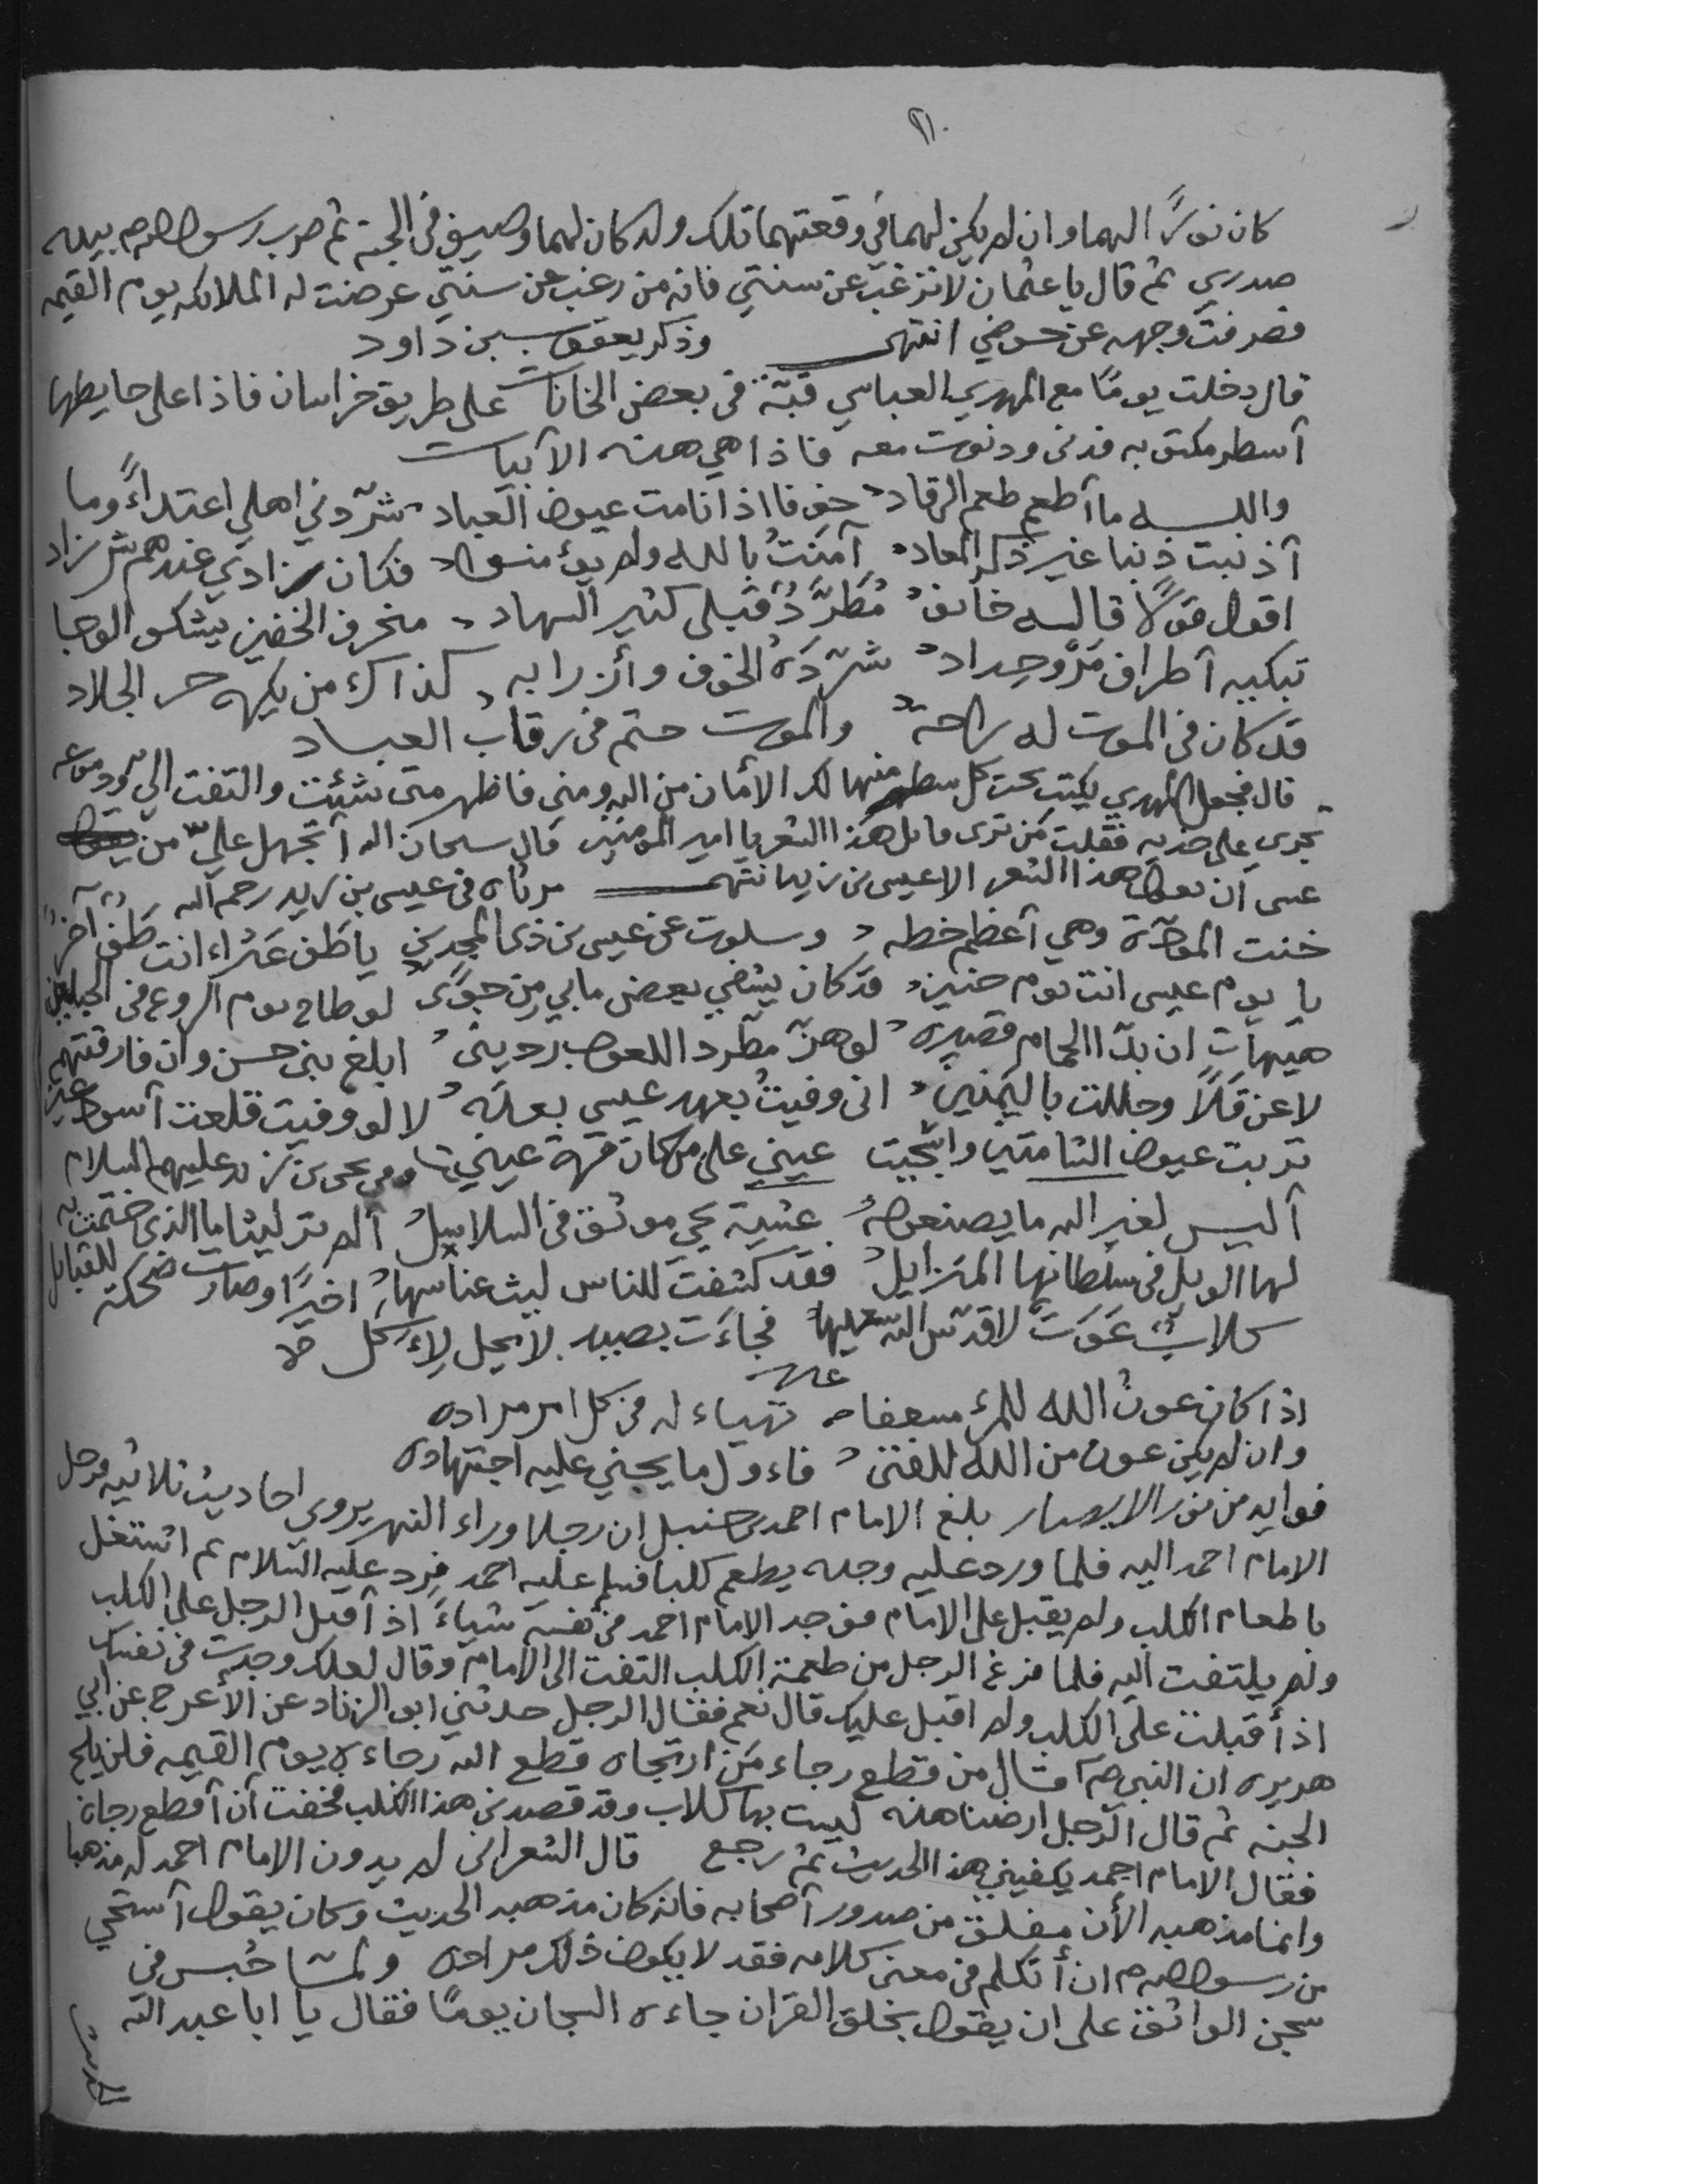 ٢١٠
كان نورًا لهما وان لم يكن لهما في وقعتهما تلك ولد كان لهما وصيف في الجنة ثم ضرب رسول الله صم بيده
صدري ثم قال يا عثمان لا ترغب عن سنتي فانه من رغب عن سنتي عرضت له الملائكه يوم القيمه
فصرفت وجهه عن حوضي انتهى وذكر يعقوب بن داود
قال دخلت يومًا مع المهدي العباسي قبّة في بعض الخانات على طريق خراسان فاذا على حايطها
أسطر مكتوبه فدنى ودنوت معه فاذا هي هذه الأبيات
والله ما أطعم طعم الرقاد خوفا اذا نامت عيون العباد شرّدني اهلي اعتداءً وما
أذنبت ذنبا غير ذكر المعاد آمنتُ بالله ولم يؤمنوا فكان زادي عندهم شر زاد
اقول قولًا قاله خائف مُطرَّدٌ قلبي كثير السهاد منخرق الخفين يشكو الوجا
تبكيه أطراف مَرْوٍ حِداد شرّدَهُ الخوف وأزرا به كذاك من يكره حر الجلاد
قد كان في الموت له راحة والموت حتم في رقاب العباد
قال فجعل المهدي يكتب تحت كل سطر منها لك الأمان من الله ومني فاظهر متى شئت والتفت الي ودموعه
تجري على خديه فقلت مَن ترى قايل هذا الشعر يا امير المومنين قال سبحان الله أتجهل علي من
عسى أن يقول هذا الشعر الا عيسى بن زيد انتهى مرثاه في عيسى بن زيد رحمه الله
خنت المودّة وهي أعظم خطه وسلوت عن عيسى بن ذي المجدين يا طف عثراء انت طف آخرٌ
يا يوم عيسى انت يوم حنين قد كان يشفي بعض ما بي من جوًى لو طاح يوم الروع في الجيلين
هيهات ان يدَ الحمام قصيرة لو هزّ مطّرد الكعوب رديني ابلغ بني حسن وان فارقتهم
لا عن قلًا وحللت باليمنين اني وفيتُ بعهد عيسى بعده لا لو وفيت قلعت أسود عيني
قربت عيون الشامتين وابكيت عيني على من كان قرة عيني وفي يحيى بن زيد عليهم السلام
أليس لغير الله ما يصنعونه عشية يحيى موثق في السلاسل ألم تر ليثا ما الذي ختمت به
لها الويل في سلطانها المتزايل فقد كشفت للناس ليث عن استها اخيرًا وصارت ضحكة للقبايل
كلابٌ عَوَت لا قدّس الله سعيها فجاءَت بصيد لا يحل لآكل
غيره
اذا كان عونُ الله للمرء مسعفا تهياء له من كل امر مراده
وان لم يكن عون من الله للفتى فاءول ما يجني عليه اجتهاده
فوايد من نور الابصار بلغ الامام احمد بن حنبل ان رجلا وراء النهر يروي احاديث ثلاثيه فرحل
الامام احمد اليه فلما ورد عليه وجده يطعم كلبا فسلم عليه احمد فرد عليه السلام ثم اشتغل
باطعام الكلب ولم يقبل على الامام فوجد الامام احمد في نفسه شياءً اذ أقبل الرجل على الكلب
ولم يلتفت اليه فلما فرغ الرجل من طعمة الكلب التفت الى الامام وقال لعلك وجدت في نفسك
اذ أقبلت على الكلب ولم اقبل عليك قال نعم فقال الرجل حدثني ابو الزناد عن الأعرج عن ابي
هريره ان النبي صم قال من قطع رجاء مَن ارتجاه قطع الله رجاءه يوم القيمه فلن يلج
الجنه ثم قال الرجل ارضنا هذه ليست بها كلاب وقد قصدني هذا الكلب فخفت أن أقطع رجاه
فقال الامام احمد يكفيني هذا الحديث ثم رجع قال الشعراني لم يدون الامام احمد له مذهبا
وانما مذهبه الأن مفلق من صدور أصحابه فانه كان مذهبه الحديث وكان يقول أستحي
من رسول الله صم ان أتكلم في معنى كلامه فقد لا يكون ذلك مراده ولما حُبس في
سجن الواثق على ان يقول بخلق القران جاءه السجان يومًا فقال يا ابا عبد الله
الحديث